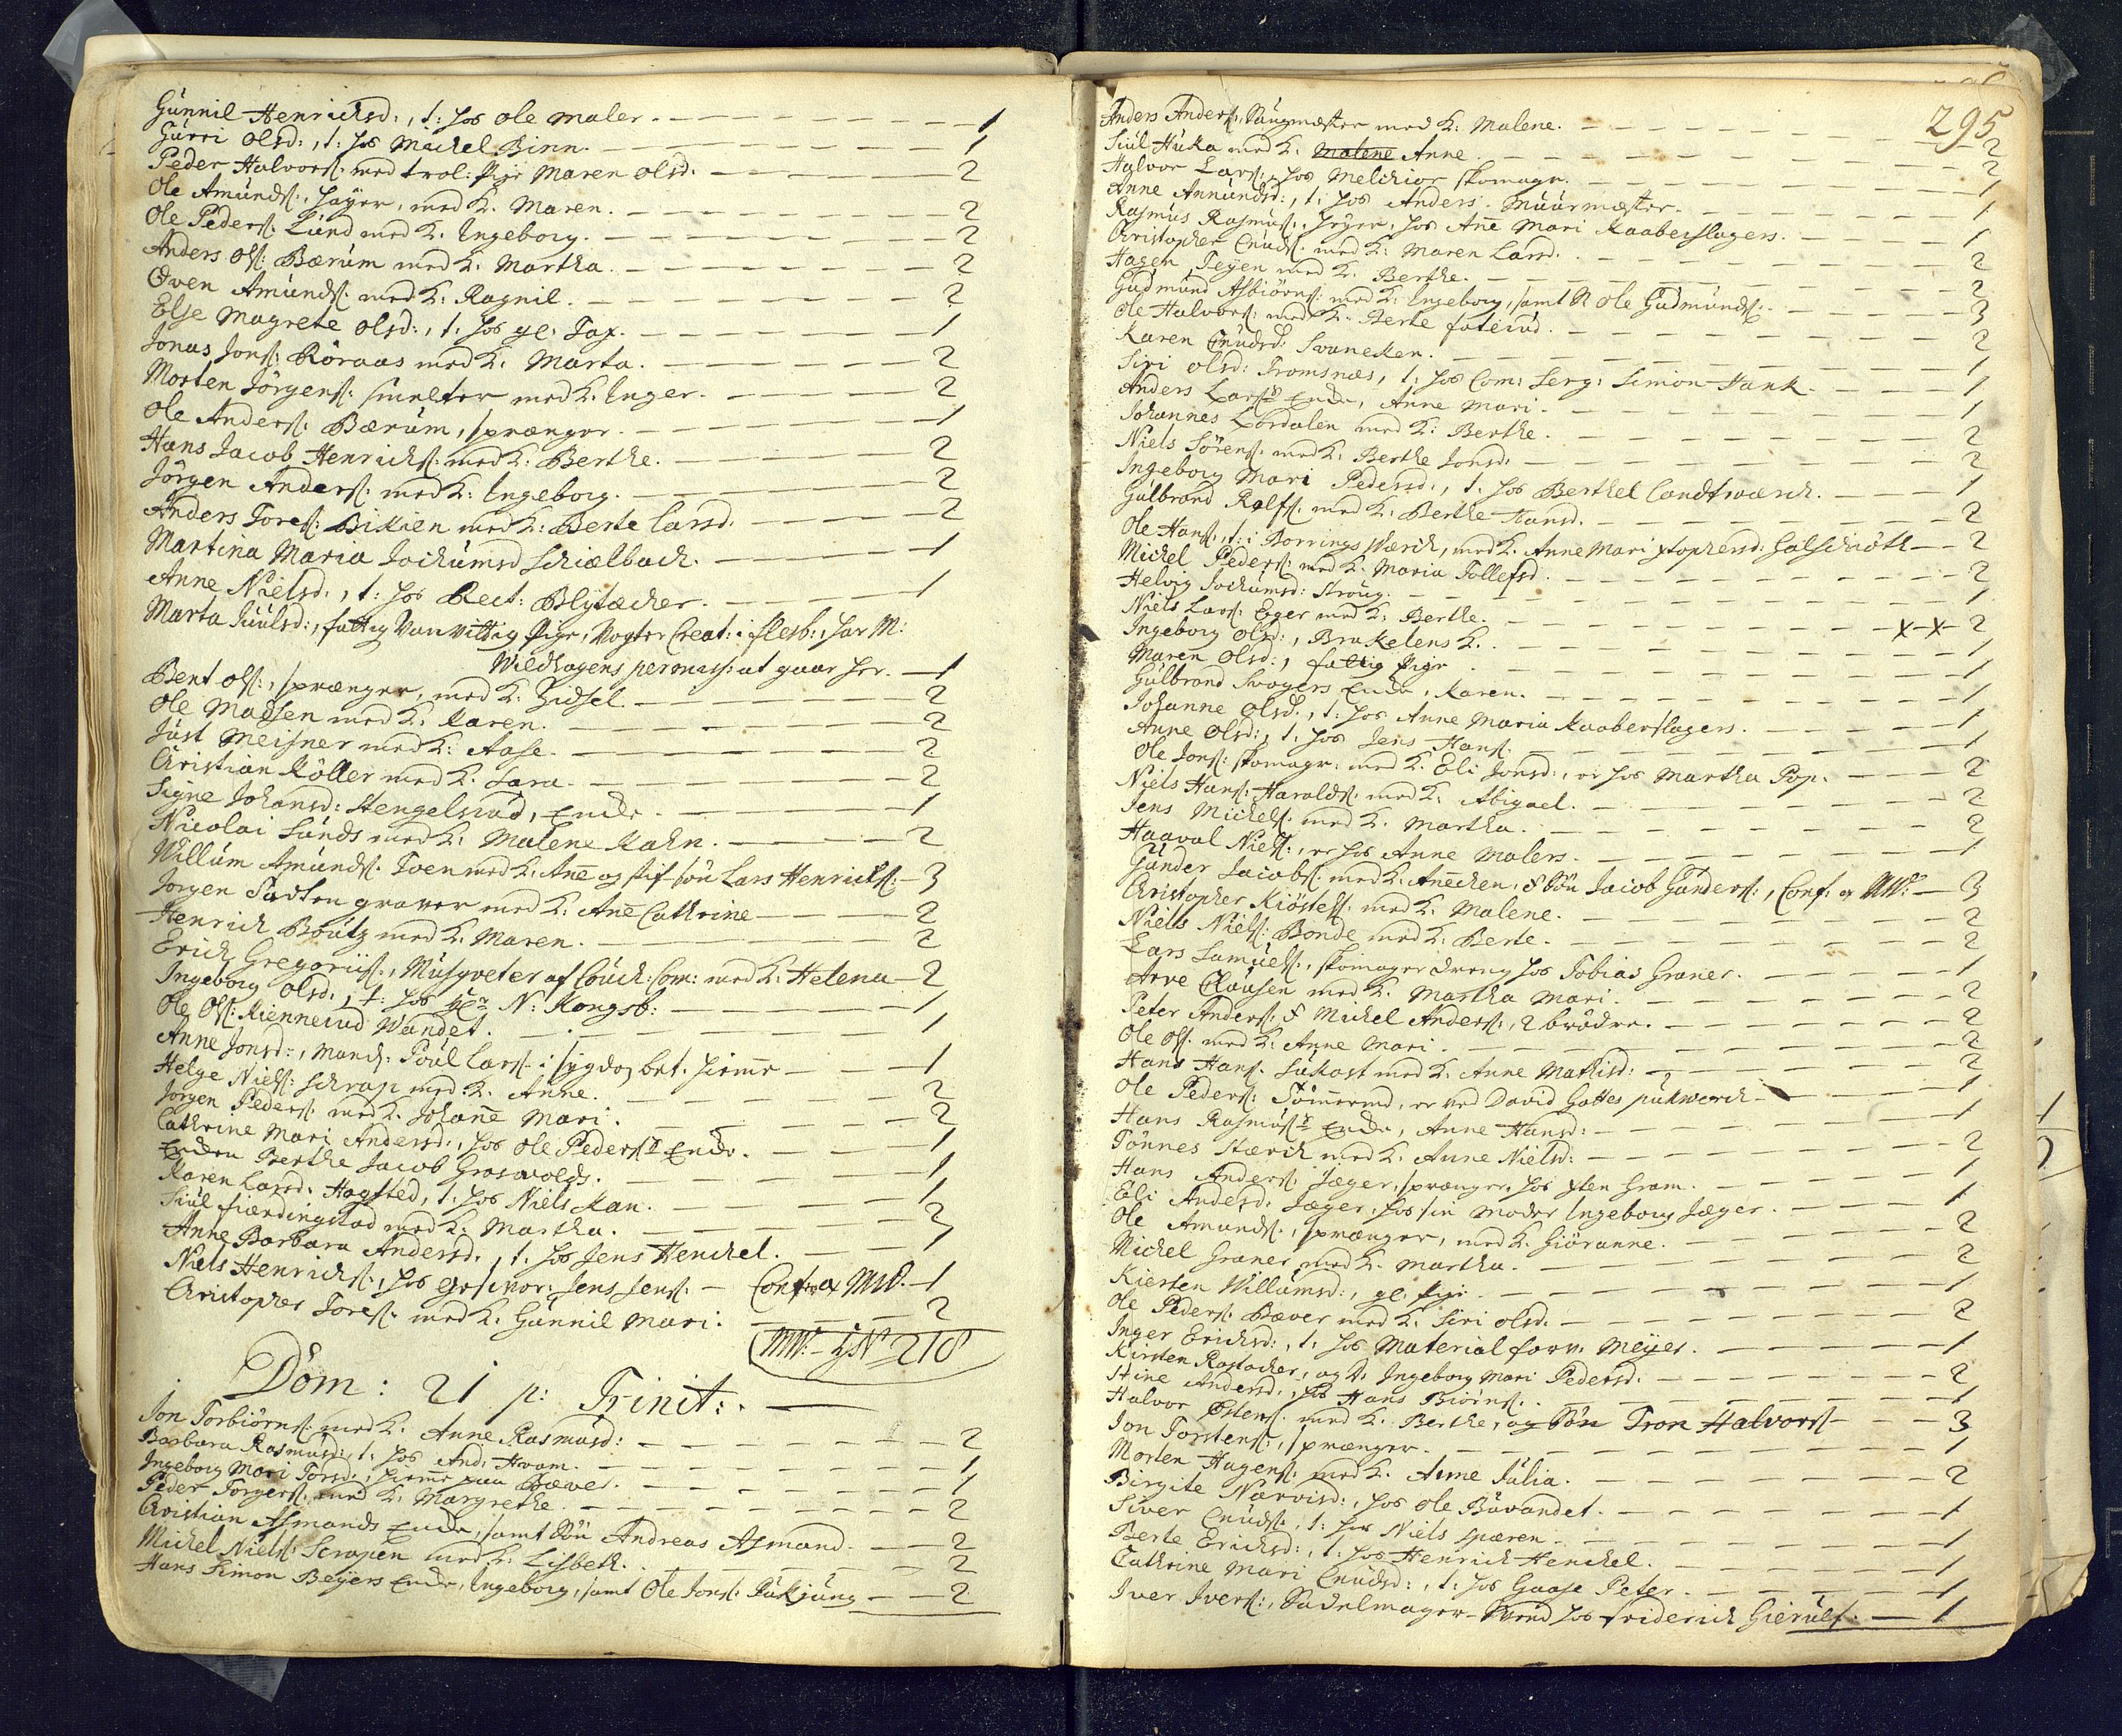 Gunnil Henrichsd:, t: hos Ole Maler. — 1
Gurri Olsd:, t: hos Michel Binn. — 1
Peder Halvors: med trol: Pige Maren Olsd. — 2
Ole Amunds:, Høyer, med K. Maren. — 2
Ole Peders: Lund med K. Ingeborg. — 2
Anders Ols: Bærum med K. Martha. — 2
Even Amunds: med K: Ragnil. — 2
Else Magrete Olsd:, t: hos gl: Fax. — 1
Jonas Jons: Röraas med K. Marta. — 2
Morten Jörgens: Smelter med K. Inger. — 2
Ole Anders: Bærum, sprænger. — 1
Hans Jacob Henrichs: med K: Berthe. — 2
Jörgen Anders: med K: Ingeborg. — 2
Anders Tores: Bikien med K: Berte Larsd. — 2
Martina Maria Jochumsd Schiælbach. — 1
Anne Nielsd., t: hos Rect: Blytæcher. — 1
Marta Juulsd:, fattig Vanvittig Pige, Vogter Creat: i Flesb:, har M:
Wildhagens permiss: at gaae her. — 1
Bent Ols:, sprænger, med K: Zidsel. — 2
Ole Madsen med K: Karen. — 2
Just Meisner med K: Aase. — 2
Christian Köller med K. Sara. — 2
Signe Johansd: Stengelsrud, Enke. — 1
Nicolai Lunds med K: Malene Kahn. — 2
Willum Amunds: Toen med K: Anē og stif-sön Lars Henrichs: — 3
Jorgen Sadten graver med K: Anē Cathrine — 2
Henrich Boutz med K: Maren. — 2
Erich Gregorius:, Musqveter af Couch: Com: med K: Helena — 2
Ingeborg Olsd:, t: hos N: Kongsb: — 1
Ole Ols: Kiennerud Wandet. — 1
Anne Jonsd:, Mand: Poul Lars: i sygdoz bet. hiemē — 1
Helge Niels: Schrap med K. Anne. — 2
Jorgen Peders: med K. Johanē Mari. — 2
Cathrine Mari Andersd:, hos Ole Peders: Enke. — 1
Enken Berthe Jacob Groswolds. — 1
Karen Larsd: Hogsted, t: hos Niels Kan. — 1
Siul fierdingstad med K: Martha. — 2
Anne Barbara Andersd., t: hos Jens Henchel. — 1
Niels Henrichs:, hos Jens Jens: — Conf: ex MW. — 1
Christopher Tores: med K: Gunnil Mari. — 2
MW: — 210
Dom: 21 p: Trinit:. —
Jon Torbiörns: med K. Anne Rasmusd: — 2
Barbara Rasmusd:, t: hos And: Hvam. — 1
Ingeborg Mari Torsd:, hiemē paa Bæver. — 1
Peder Torgers: med K: Margrethe. — 2
Christian Asmands Enke, samt Sön Andreas Asmand. — 2
Michel Niels: Scrapen med K: Lisbeth. — 2
Hans Simon Beyers Enke, Ingeborg, samt Ole Jons: Pukjung — 2
295
Anders Anders:, Pungmester med K: Malene. — 2
Siul Huka med K: Malene Anne. — 2
Halvor Lars:, hos Melchior skomager. — 1
Anne Annundsd:, t: hos Anders Muurmæster. — 1
Rasmus Rasmus:, Høyer, hos Anē Mari Kaaberslagers. — 1
Christopher Cnuds: med K: Maren Larsd. — 2
Hagen Teyen med K. Berthe. — 2
Gudmund Asbiörns: med K: Ingeborg, samt S: Ole Gudmunds: — 3
Ole Halvors: med K: Berte foterud. — 2
Karen Cnudsd: Svanecken. — 1
Siri Olsd: Tromsnæs, t: hos Com: Serg: Simon Hank — 1
Anders Lars: Enke, Anne Mari. — 1
Johannes Lördalen med K: Berthe. — 2
Niels Sörens: med K: Berthe Jonsd: — 2
Ingeborg Mari Pedersd:, t: hos Berthel Landtværch. — 1
Gulbrand Rolfs: med K: Berthe Hansd. — 2
Ole Hans:, t: i Dorrings Værch, med K. Anne Mari Xtophersd: Galschiöth — 2
Michel Peders: med K. Maria Tollefsd. — 2
Helvig Jochumsd: Stroug. — 1
Niels Lars: Eger med K: Berthe. — x x 2
Ingeborg Olsd:, Brakelens K. — 1
Maren Olsd:, fattig Pige — 1
Gulbrand Svagers Enke, Karen. — 1
Johanne Olsd., t: hos Anne Maria Kaaberslagers. — 1
Anne Olsd:, t: hos Jens Hans: — 1
Ole Jons: skomager: med K. Eli Jonsd:, er hos Martha Pop. — 2
Niels Hans: Haralds: med K: Abigael. — 2
Jens Michels: med K: Martha. — 2
Haaval Niels:, er hos Anne Malers. — 1
Gunder Jacobs: med K: Anēchen, & Sön Jacob Gunders:, Conf: ex MW: — 3
Christopher Kiöstels: med K: Malene. — 2
Niels Niels: Bonde med K: Berte. — 2
Lars Samuels:, skomager dreng hos Tobias Graner. — 1
Arve Clausen med K. Martha Mari. — 2
Peter Anders: & Michel Anders:, 2 brödre. — 2
Ole Ols: med K: Anne Mari. — 2
Hans Hans: Lukast med K: Anne Mathisd: — 2
Ole Peders: Tömmerud, er ved David Gottes pukwerch — 1
Hans Rasmus: Enke, Anne Hansd: — 1
Tönnes Stærch med K: Anne Nielsd: — 2
Hans Anders: Jæger, sprænger, hos Xten Gram. — 1
Eli Andersd: Jæger, hos sin Moder Ingeborg Jæger. — 1
Ole Amunds:, sprænger, med K. Giöranne. — 2
Michel Graner med K. Martha. — 2
Kiersten Willumsd:, gl: Pige — 1
Ole Peders: Bæver med K: Siri Olsd. — 2
Inger Erichsd:, t: hos Material forv: Meyer. — 1
Kirsten Rostocher, og D: Ingeborg Mari Pedersd. — 2
Stine Andersd:, hos Hans Biörns:. — 1
Halvor Østens: med K: Berthe, og Sön Tron Halvors — 3
Jon Torstens:, sprænger. — 1
Morten Hagens: med K: Anne Julia. — 2
Birgite Narvesd:, hos Ole Buvandet. — 1
Siver Cnuds:, t: hos Niels Spæren. — 1
Berte Erichsd:, t: hos Henrich Henchel. — 1
Cathrine Mari Cnudsd:, t: hos Gaase Peter. — 1
Iver Ivers:, Sadelmager-Svend hos Friderich Gierulf: — 1